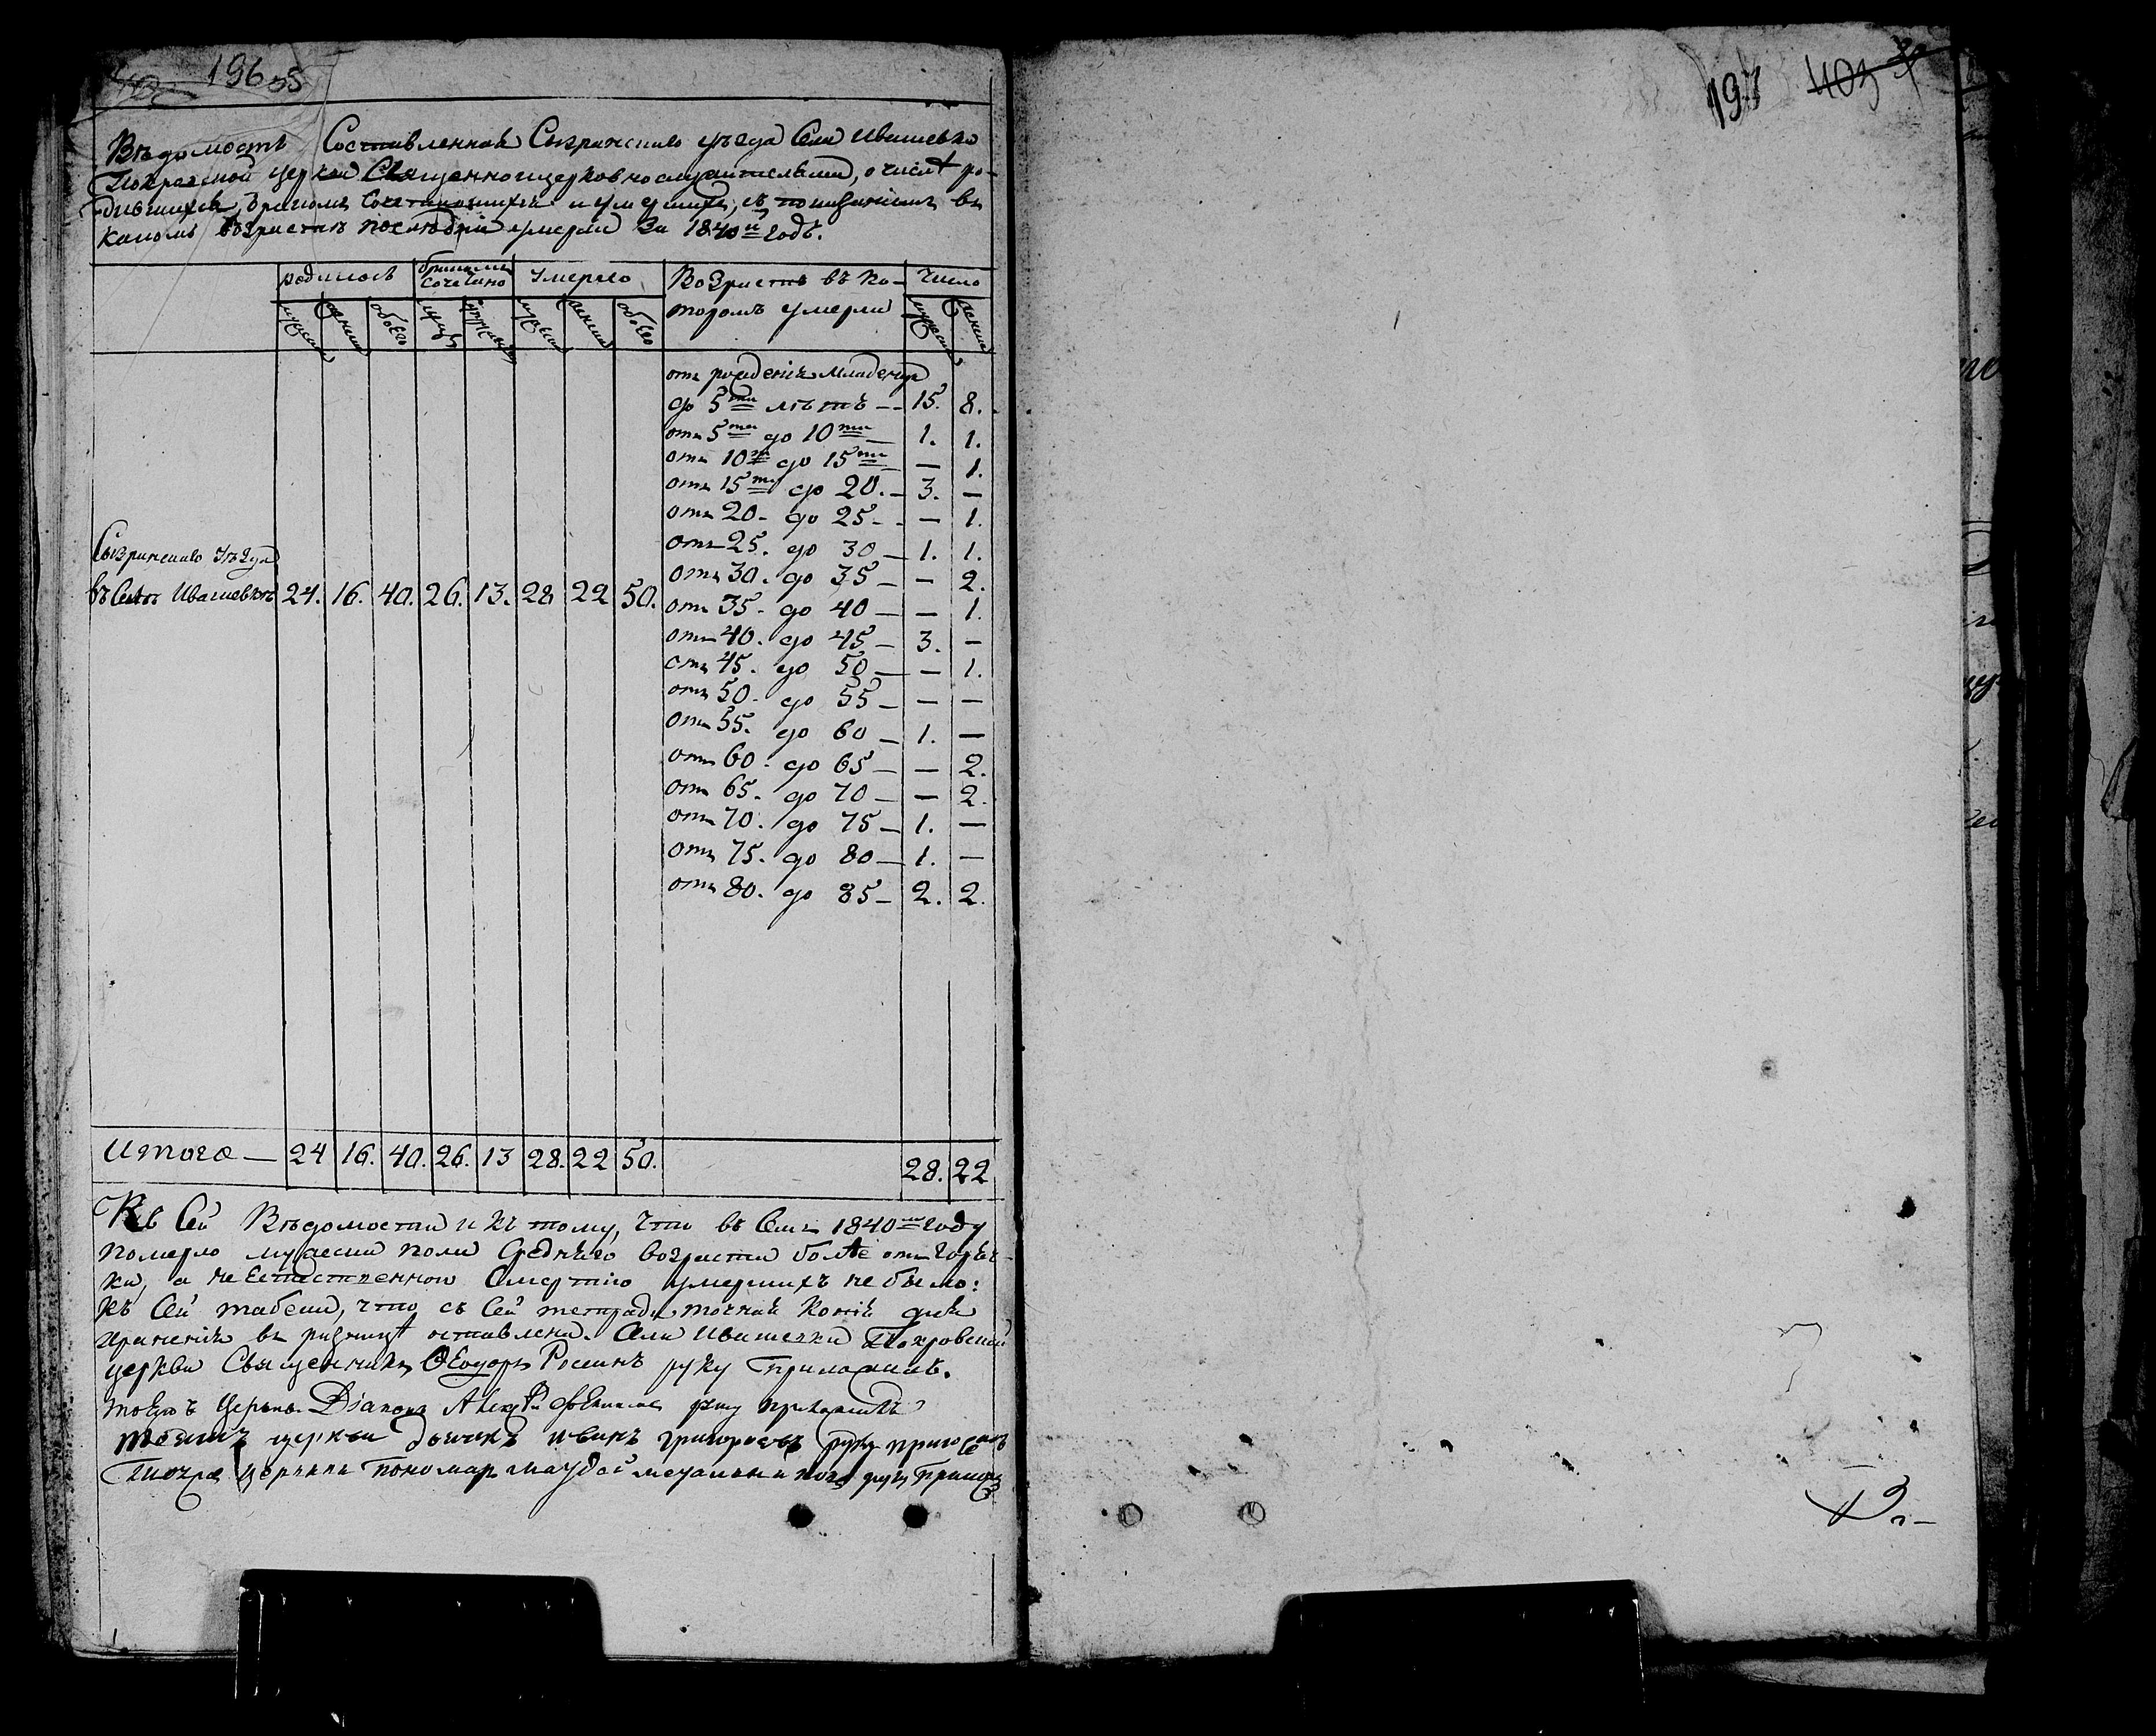 196 35
Вѣдомость Составленная Сызранскаго уѣзда Села Ивашевки
Покровской церкви Священноцерковнослужителями, о числѣ ро-
дившихся, бракомъ сочетавшихся и умершихъ, съ показаніемъ въ
какомъ возрастѣ послѣдніи умерли за 1840й годъ.
родилось бракомъ сочетано умерло Возрастъ въ ко- число
мужеска женска обоего мужеска женска обоего торомъ умерли мужеска женска
отъ рожденія младенцъ
до 5ти лѣтъ -- 15. 8.
отъ 5ти до 10ти — 1. 1.
отъ 10ти до 15ти — — 1.
отъ 15ти до 20. — 3. —
отъ 20. до 25 - - — 1.
Сызранскаго Уѣзда отъ 25. до 30 — 1. 1.
отъ 30. до 35 — — 2.
въ Селѣ Ивашевкѣ 24. 16. 40. 26. 13. 28 22 50. отъ 35. до 40 — — 1.
отъ 40. до 45 — 3. —
отъ 45. до 50 — — 1.
отъ 50. до 55 — — —
отъ 55. до 60 — 1. —
отъ 60. до 65 — — 2.
отъ 65. до 70 — — 2.
отъ 70. до 75 — 1. —
отъ 75. до 80 — 1. —
отъ 80. до 85 — 2. 2.
Итого — 24 16. 40. 26. 13 28. 22 50. 28. 22
Къ Сей Вѣдомости и къ тому, что въ семъ 1840мъ году
померло мужеска пола средняго возраста болѣе отъ горяч-
ки, а не Естественною Смертію умершихъ не было:
къ Сей табели, что съ Сей тетради точная Копія для
храненія въ ризницѣ оставлена. Села Ивашевки Покровской
церкви Священникъ Ѳеодоръ Россинъ руку приложилъ.
тоежъ Церкви Діаконъ Алексѣй руку приложилъ
тоежъ церкви дьячекъ иванъ григорьевъ руку приложилъ
церкви пономарь руку
197 403